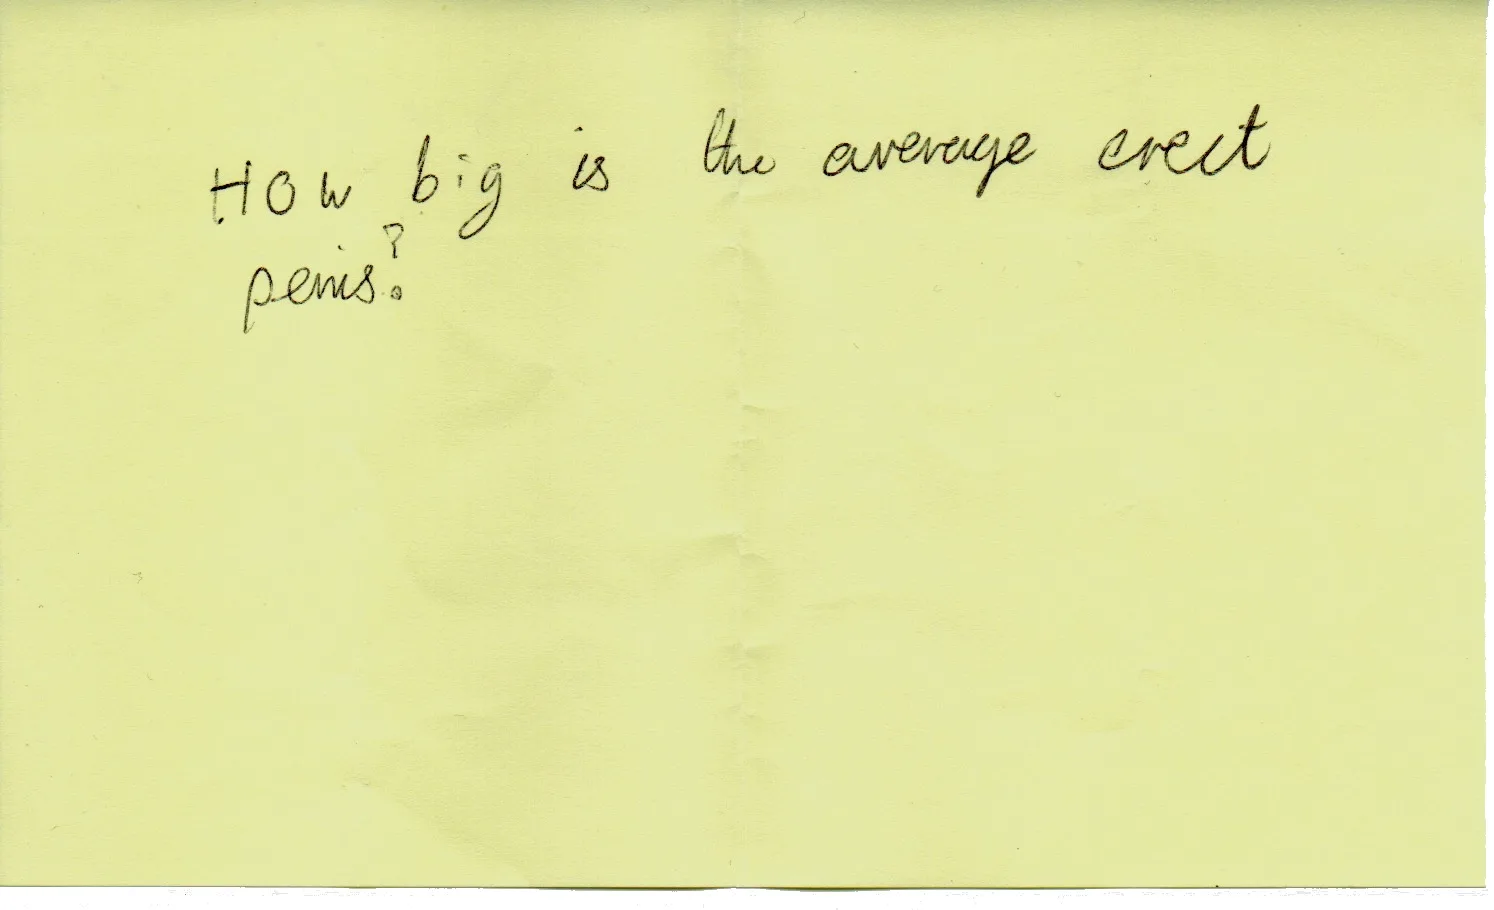 How big is the average erect
penis?